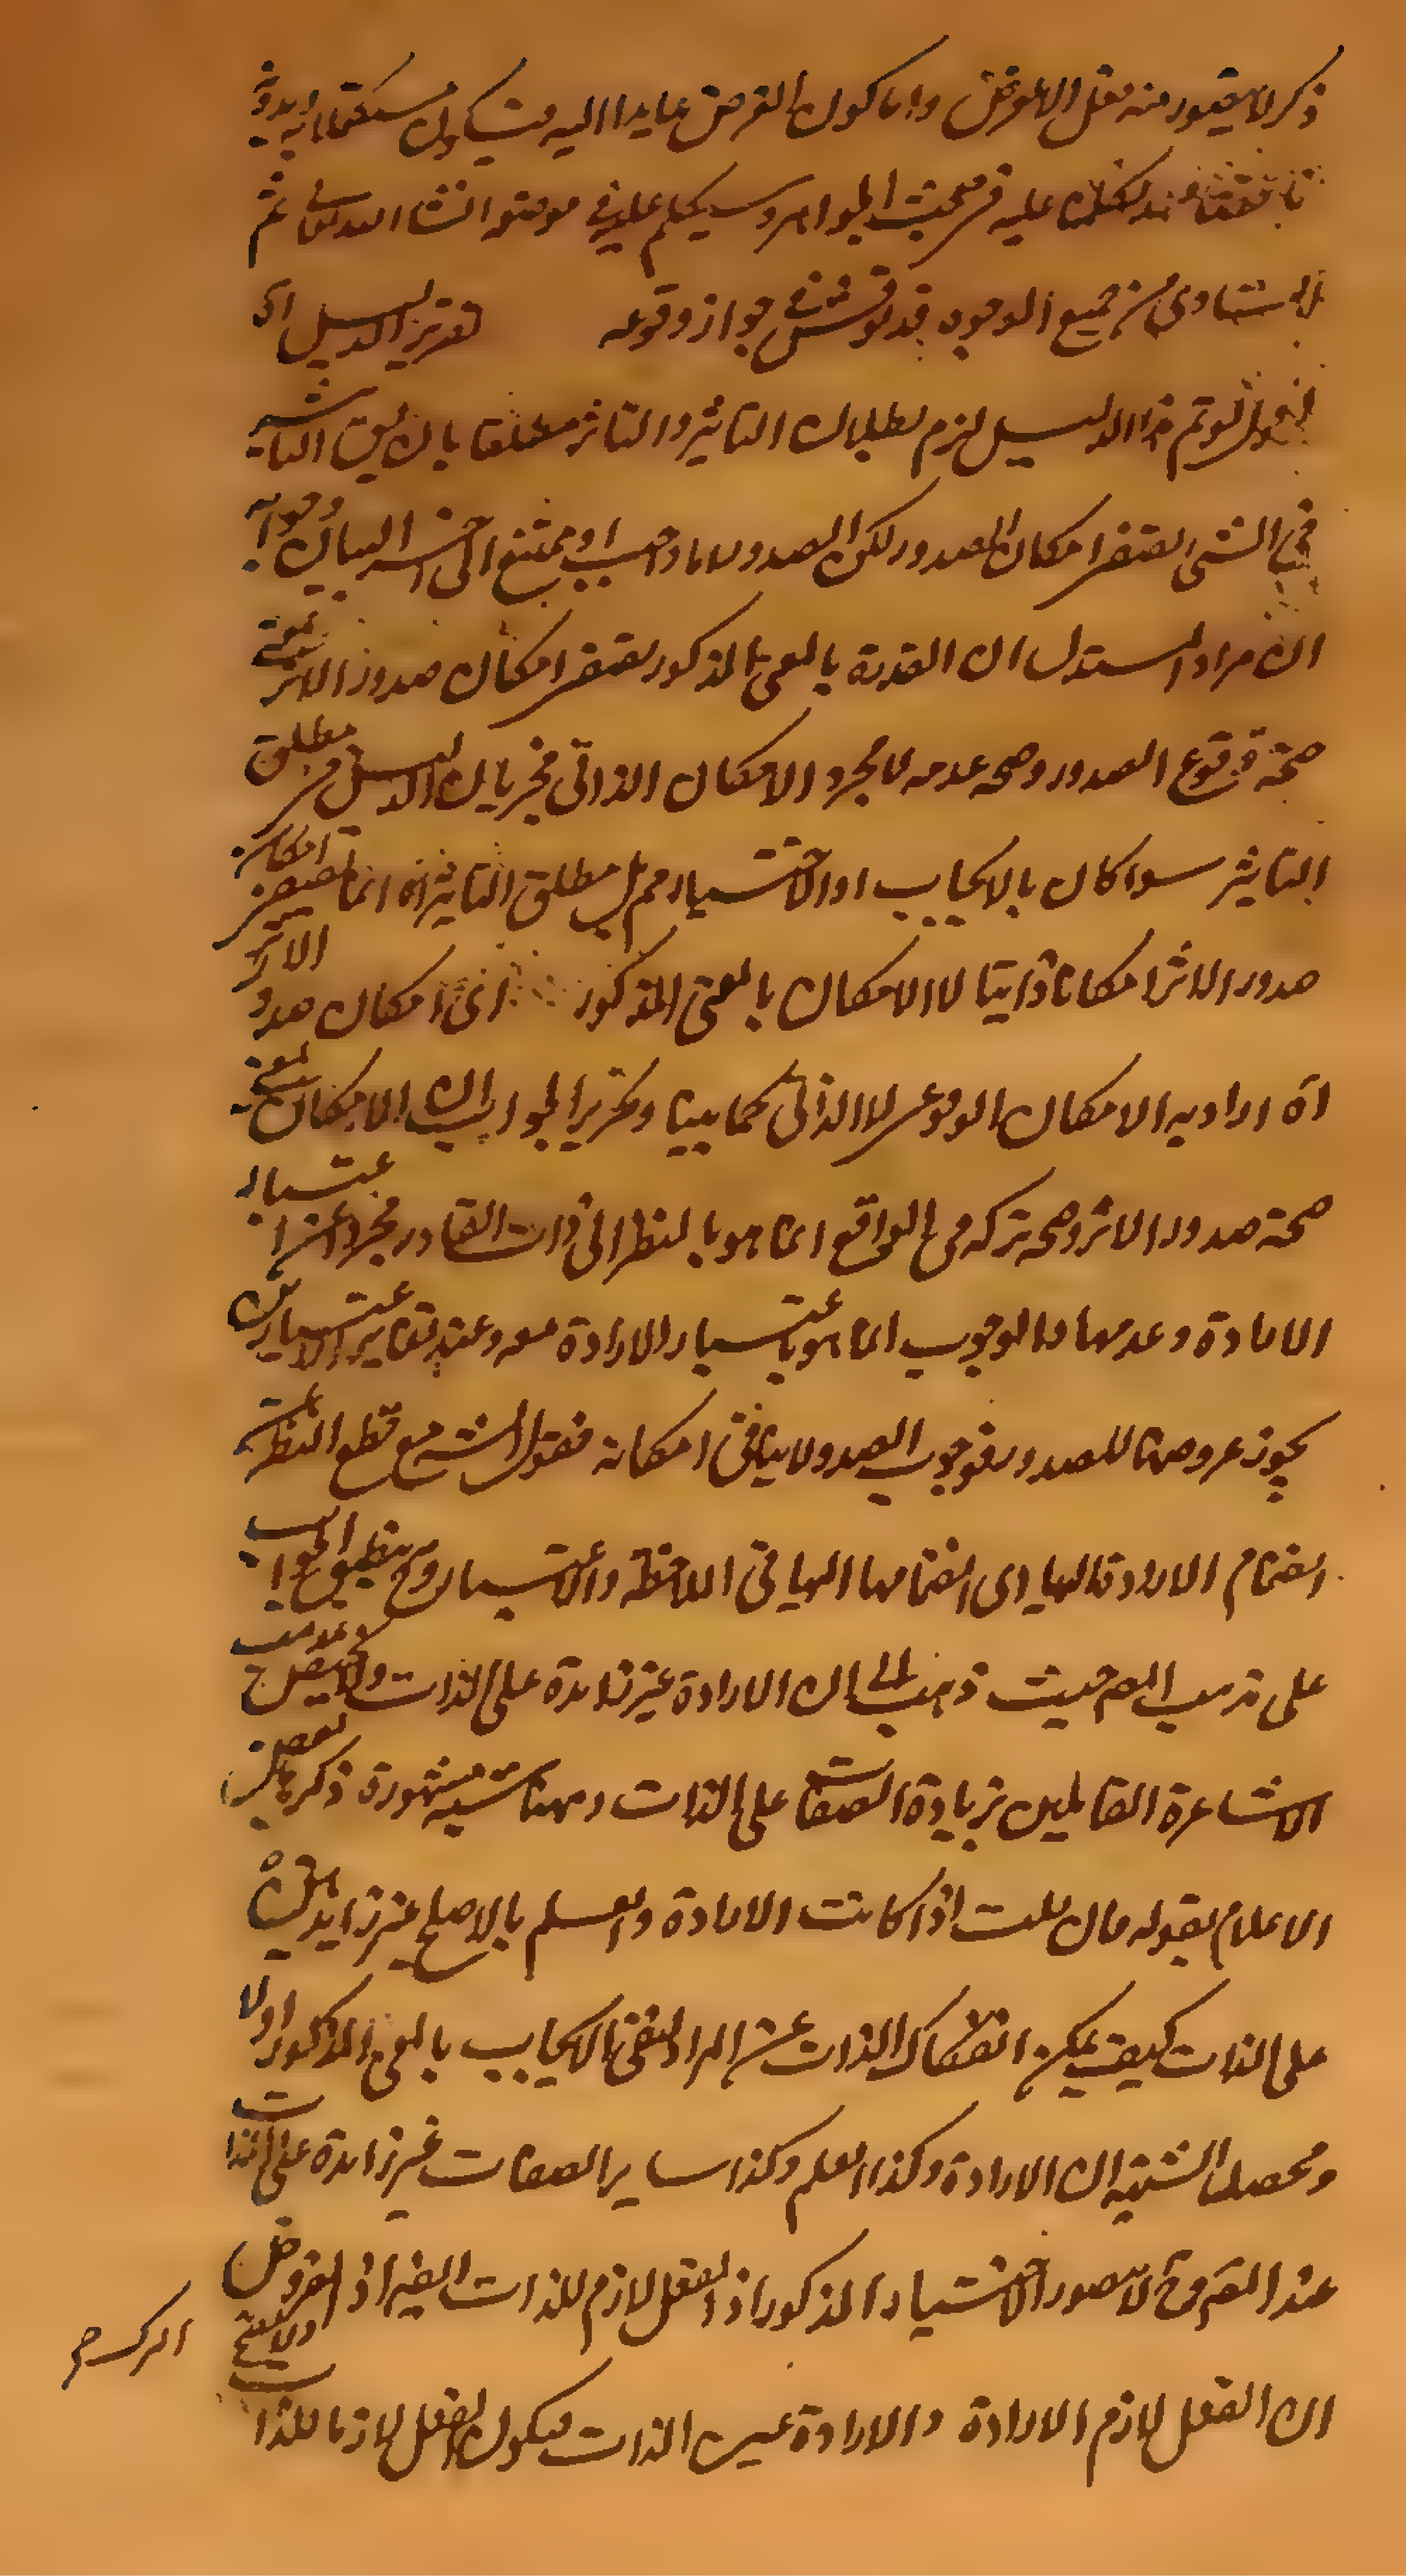 ذكر لا يتصور منه فعل الا لغرض واما كون الغرض عايدا اليه فيكون مستكملا به
عليه في مبحث الجواهر وسيتكلم عليه في موضعه انشا الله تعالى ثم
التساوي من جميع الوجوه قد نوقش في جواز وقوعه تقرير الدليل اى
لو تم هذا الدليل لزم بطلان التاثير والتاثر مطلقا بان يق التاثير
في الشى يقتضى امكان الصدور لكن الصدور اما واجب او ممتنع الى اخر البيان وجوابه
ان مراد المستدل ان القدرة بالمعنى المذكور يقتضى امكان صدور الاثر بمعنى
صحة وقوع الصدور وصحة عدمه لا مجرد الامكان الذاتى فجريان الدليل فى مطلق
التاثير سوا كان بالايجاب او الاختيار مم بل مطلق التاثير انما يقتضى امكان
صدور الاثر امكانا ذاتيا لا الامكان بالمعنى المذكور اى امكان صدور الاثر
اه اراد به الامكان الوقوعى لا الذاتى كما بينا وتحرير الجواب ان الامكان بمعنى
صحة صدور الاثر وصحة تركه فى الواقع انما هو بالنظر الى ذات القادر مجردا عن اعتبار
الارادة وعدمها والوجوب انما هو باعتبار الارادة معه وعند تغاير الاعتبارين
يجوز عروضهما للصدور فوجوب الصدور لا ينافى امكانه فقول الش مع قطع النظر عن
انضمام الارادة اليها اى انضمامها اليها فى الملاحظة والاعتبار وح ينطبق الجواب
على مذهب المص حيث ذهب الى ان الارادة غير زايدة على الذات ولا يختص بمذهب
الاشاعرة القايلين بزيادة الصفات على الذات وههنا شبهة مشهورة ذكرها بعض
الاعلام بقوله فان قلت اذا كانت الارادة والعلم بالاصلح غير زايدين
على الذات كيف يمكن انفكاك الذات عن المراد لنفى الايجاب بالمعنى المذكور اولا
ومحصل الشبهة ان الارادة وكذا العلم وكذا ساير الصفات غير زايدة على الذات
عند المص وح لا يتصور الاختيار المذكور اذ الفعل لازم للذات ايضا اذ المفروض
ان الفعل لازم الارادة والارادة عين الذات فيكون الفعل لازما للذات ولا يصح
الترك ح